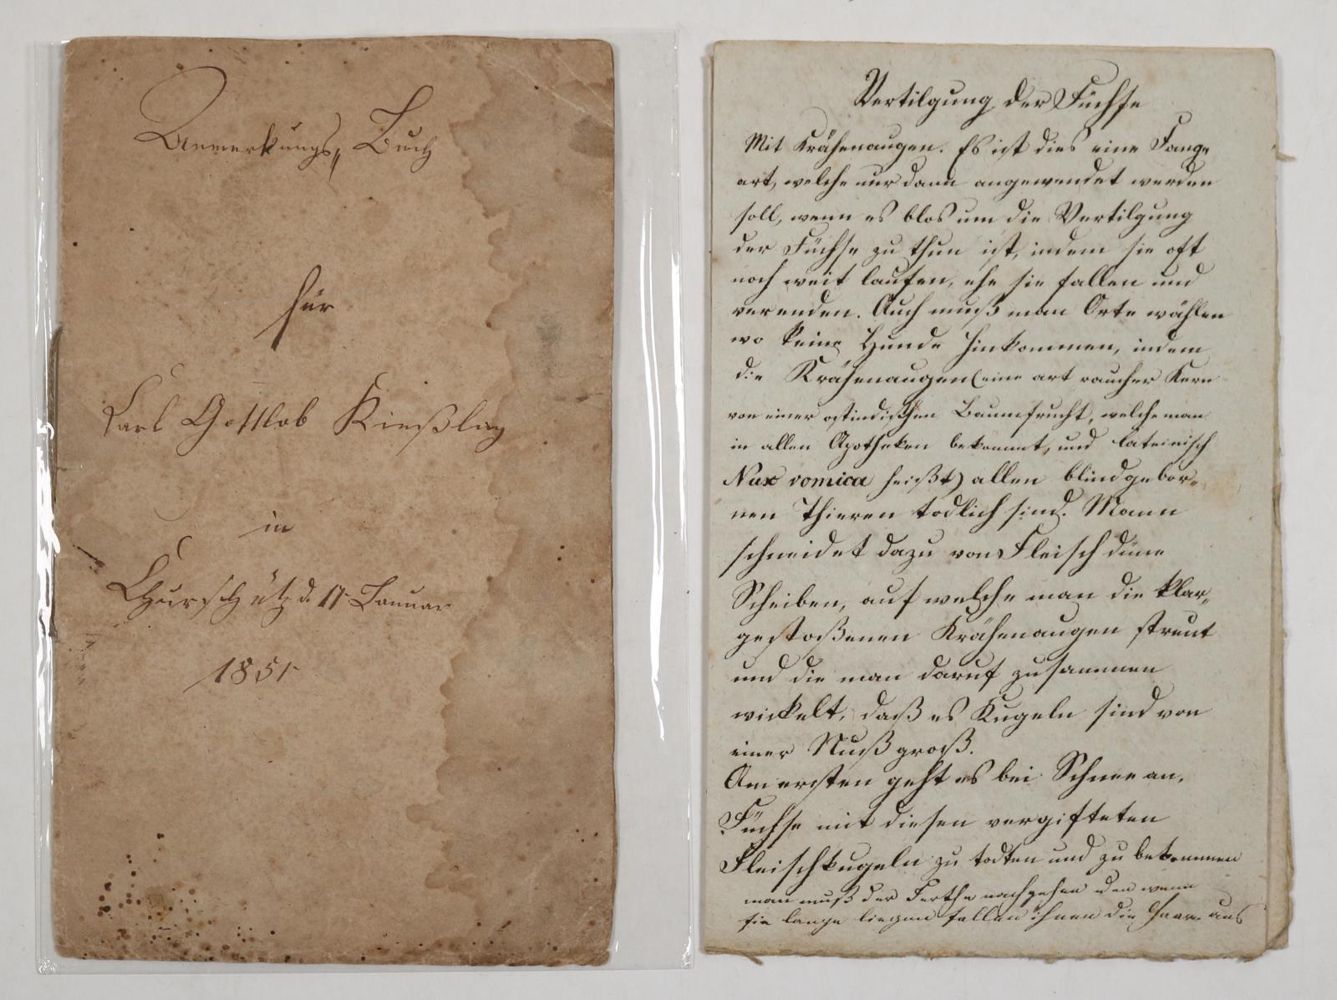 Anmerkungs„ Buch
für
Karl Gottlob Kießling
in
Churschütz d. 17 Januar
1851
Vertilgung der Füchse
Mit Krähenaugen. Es ist dies eine Fang„
art, welche nur dann angewendet werden
soll, wenn es blos um die Vertilgung
der Füchse zu thun ist, indem sie oft
noch weit laufen, ehe sie fallen und
verenden. Auch muß man Orte wählen
wo keine Hunde hinkommen, indem
die Krähenaugen (eine art raucher Kern
von einer ostindischen Baumfrucht, welche man
in allen Apotheken bekommt, und lateinisch
Nux vomica heißt) allen blindgebor„
nen Thieren todlich sind. Mann
schneidet dazu von Fleisch düne
Scheiben, auf welche man die klar„
gestoßenen Krähenaugen streut
und die man daruf zusammen
wickelt, daß es Kugeln sind von
einer Nuß groß.
Am ersten geht es bei Schnee an,
Füchse mit diesen vergifteten
Fleischkugeln zu todten und zu bekommen
man muß der Ferthe nachgehen den wenn
sie lange liegen fallen ihnen die Haare aus